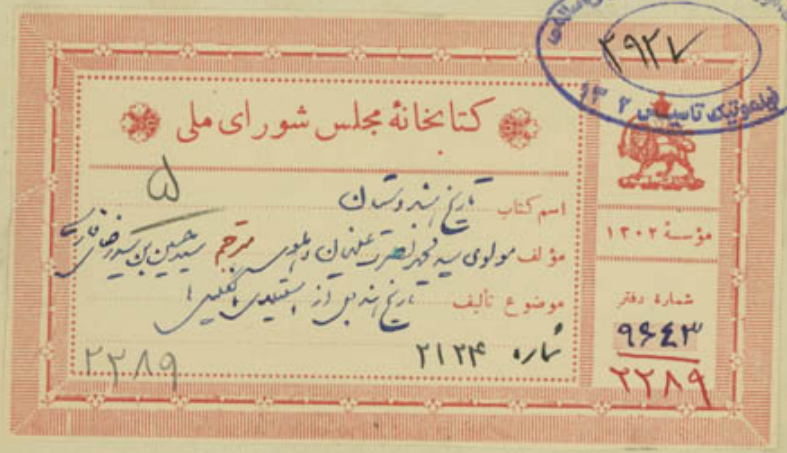 ۴۹۲۷
فیلموتیک تأسیس ۲ ۱۳
کتابخانهٔ مجلس شورای ملی
۵
اسم کتاب تاریخ هندوستان
مؤلف مولوی سید محمد نصرت علیخان دهلوی مترجم سید حسین بن سید رضا
موضوع تألیف تاریخ هند از انگلیس
شماره ۲۱۲۴
۲۲۸۹
مؤسسهٔ ۱۳۰۲
شمارهٔ دفتر
۹۶۴۳
۲۲۸۹